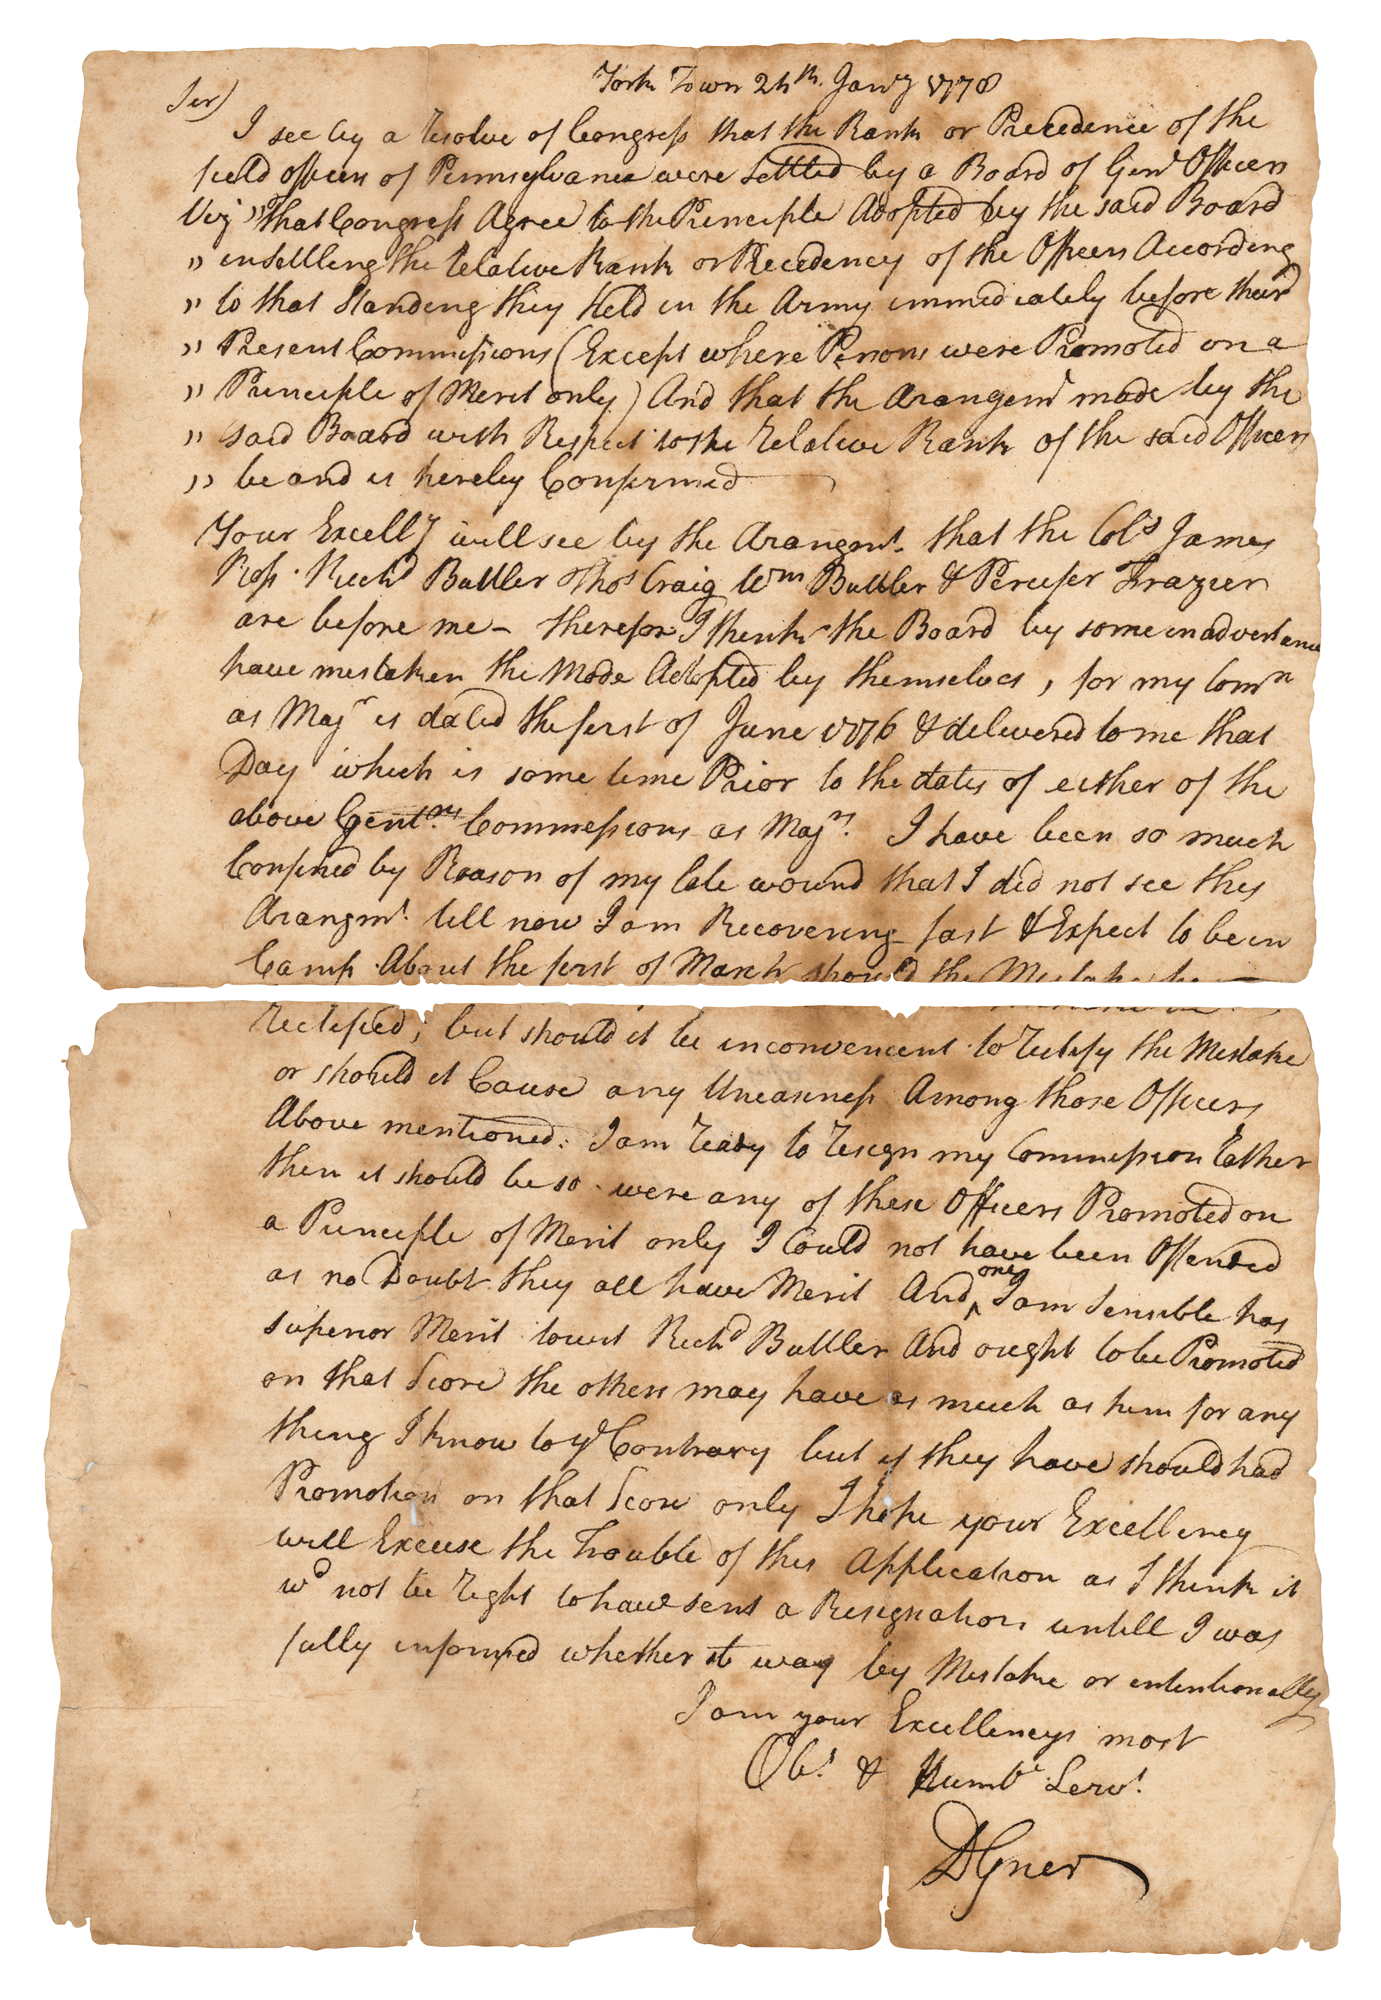 York Town 24th. Jany 1778
Sir)
I see by a resolve of Congress that the Rank or Precedence of the
field officers of Pennsylvania were Settled by a Board of Genl Officers
Viz " That Congress Agree to the Principle Adopted by the said Board
" in settling the relative Rank or Precedency of the Officers According
" to that Standing they Held in the Army immediately before their
" Present Commissions (Except where Persons were Promoted on a
" Principle of Merit only) And that the Arangemt made by the
" said Board with Respect to the relative Rank of the said Officers
" be and is hereby Confirmed
Your Excelly will see by the Arangmt. that the Cols James
Ross. Richd Buttler Thos Craig Wm Buttler & Percifer Frazier
are before me - therefor I think the Board by some inadvertance
have mistaken the Mode Adopted by themselves, for my Comn
as Majr is dated the first of June 1776 & delivered to me that
Day which is some time Prior to the dates of either of the
above Gentn.s Commissions as Majrs. I have been so much
Confined by Reason of my late wound that I did not see this
Arangmt. till now I am Recovering fast & Expect to be in
Camp About the first of March should the Mistake be
rectified; but should it be inconvenient to rectify the Mistake
or should it Cause any Uneasiness Among those Officers
Above mentioned. I am ready to resign my Commission rather
then it should be so. were any of these Officers Promoted on
a Principle of Merit only I Could not have been Offended
as no Doubt they all have Merit And one I am Sensible has
superior Merit to wit Richd Buttler And ought to be Promoted
on that Score the others may have as much as him for any
thing I know to ye Contrary but if they have should had
Promotion on that Score only I hope your Excellency
will Excuse the Trouble of this Application as I think it
wd not be right to have sent a Resignation untill I was
fully informed whether it way by Mistake or intentionally
I am your Excellencys most
Obt. & Humbe Servt.
DGrier